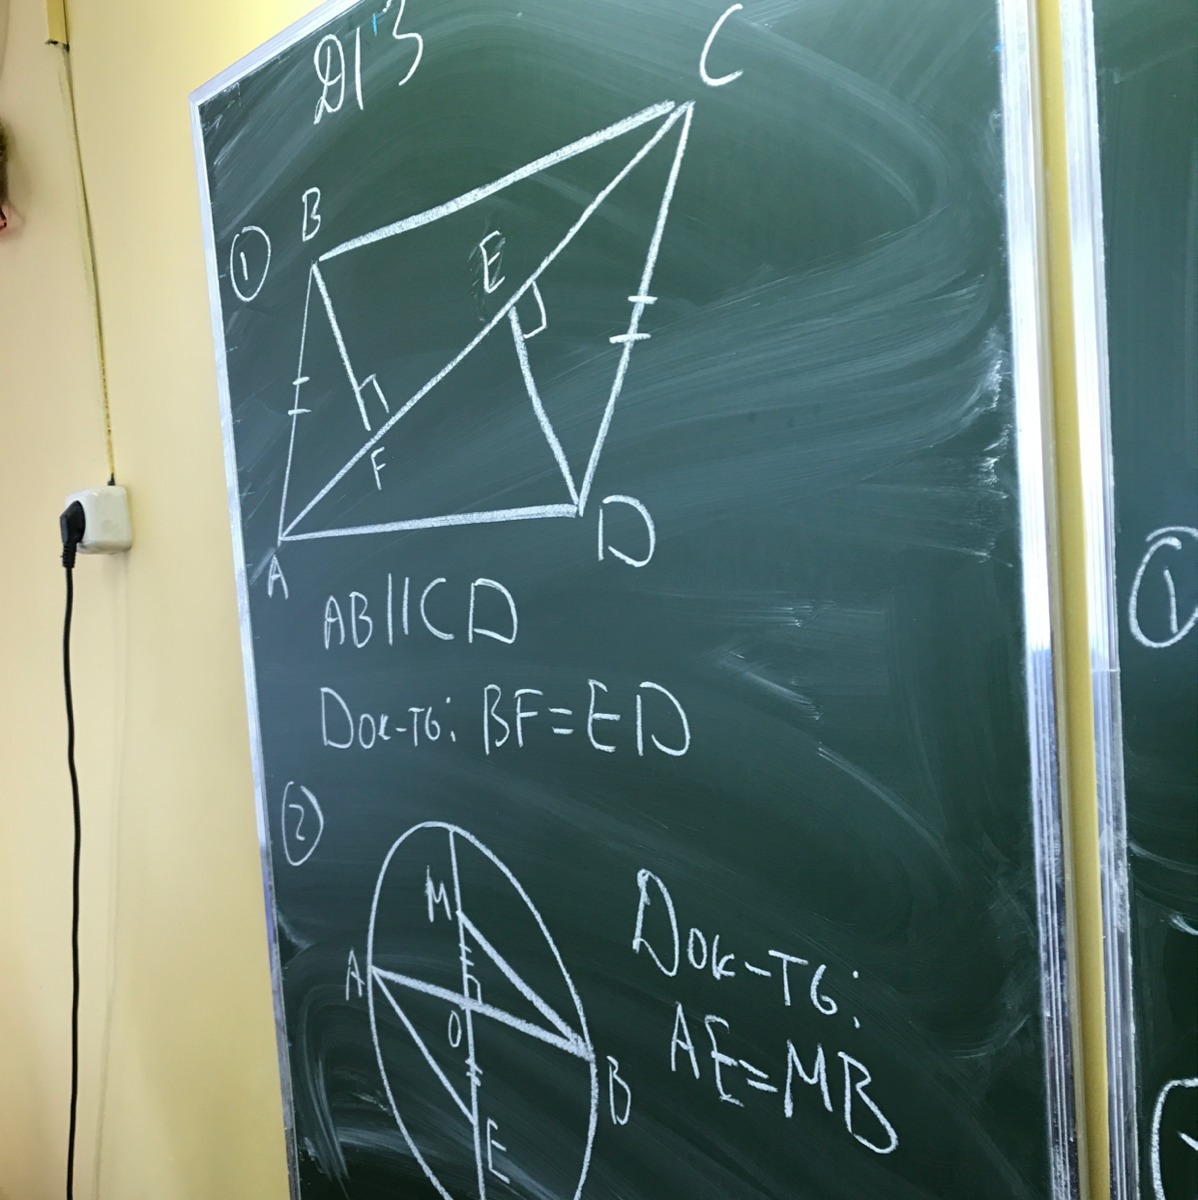 Д/З
①
B
C
E
F
A
D
AB||CD
Док-ть: BF=ED
②
M
A
O
B
E
Док-ть:
AE=MB
①